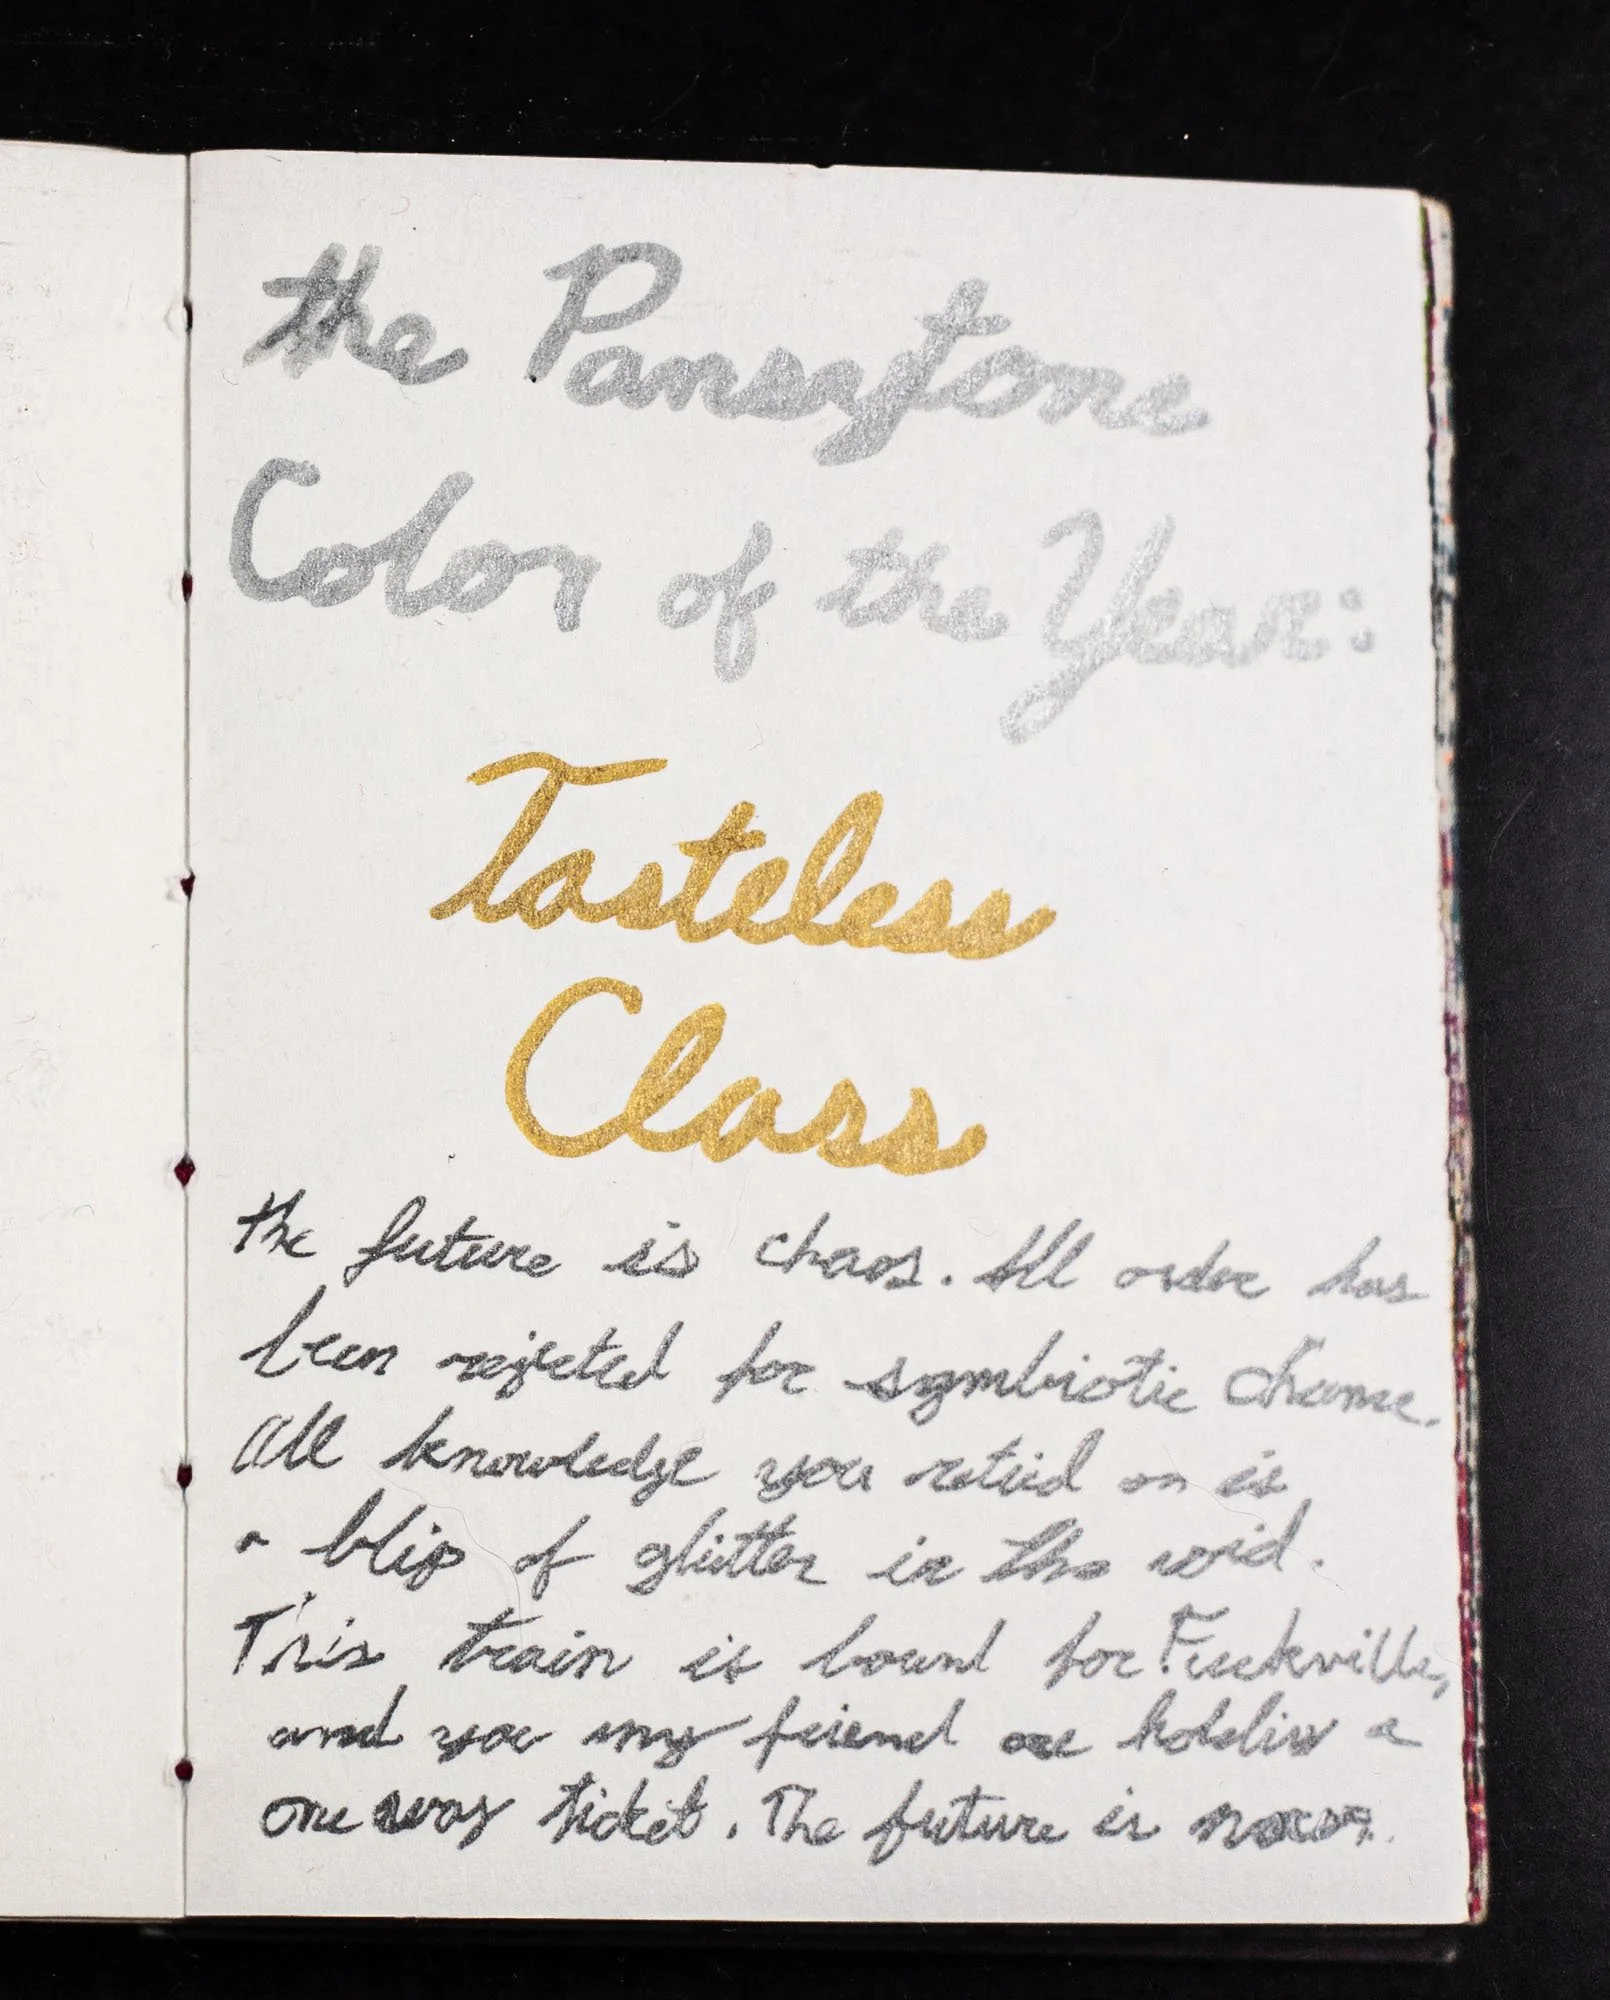 the Pansytone
Color of the Year:
Tasteless
Class
the future is chaos. All order has
been rejected for symbiotic chance.
All knowledge you retied on is
a blip of glitter in the void.
This train is bound for Fuckville,
and you my friend are holdin a
one way ticket. The future is